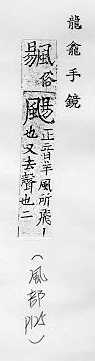 龍龕手鏡
俗
颺正音羊風所飛丨
也又去聲也二
(風部
P125)